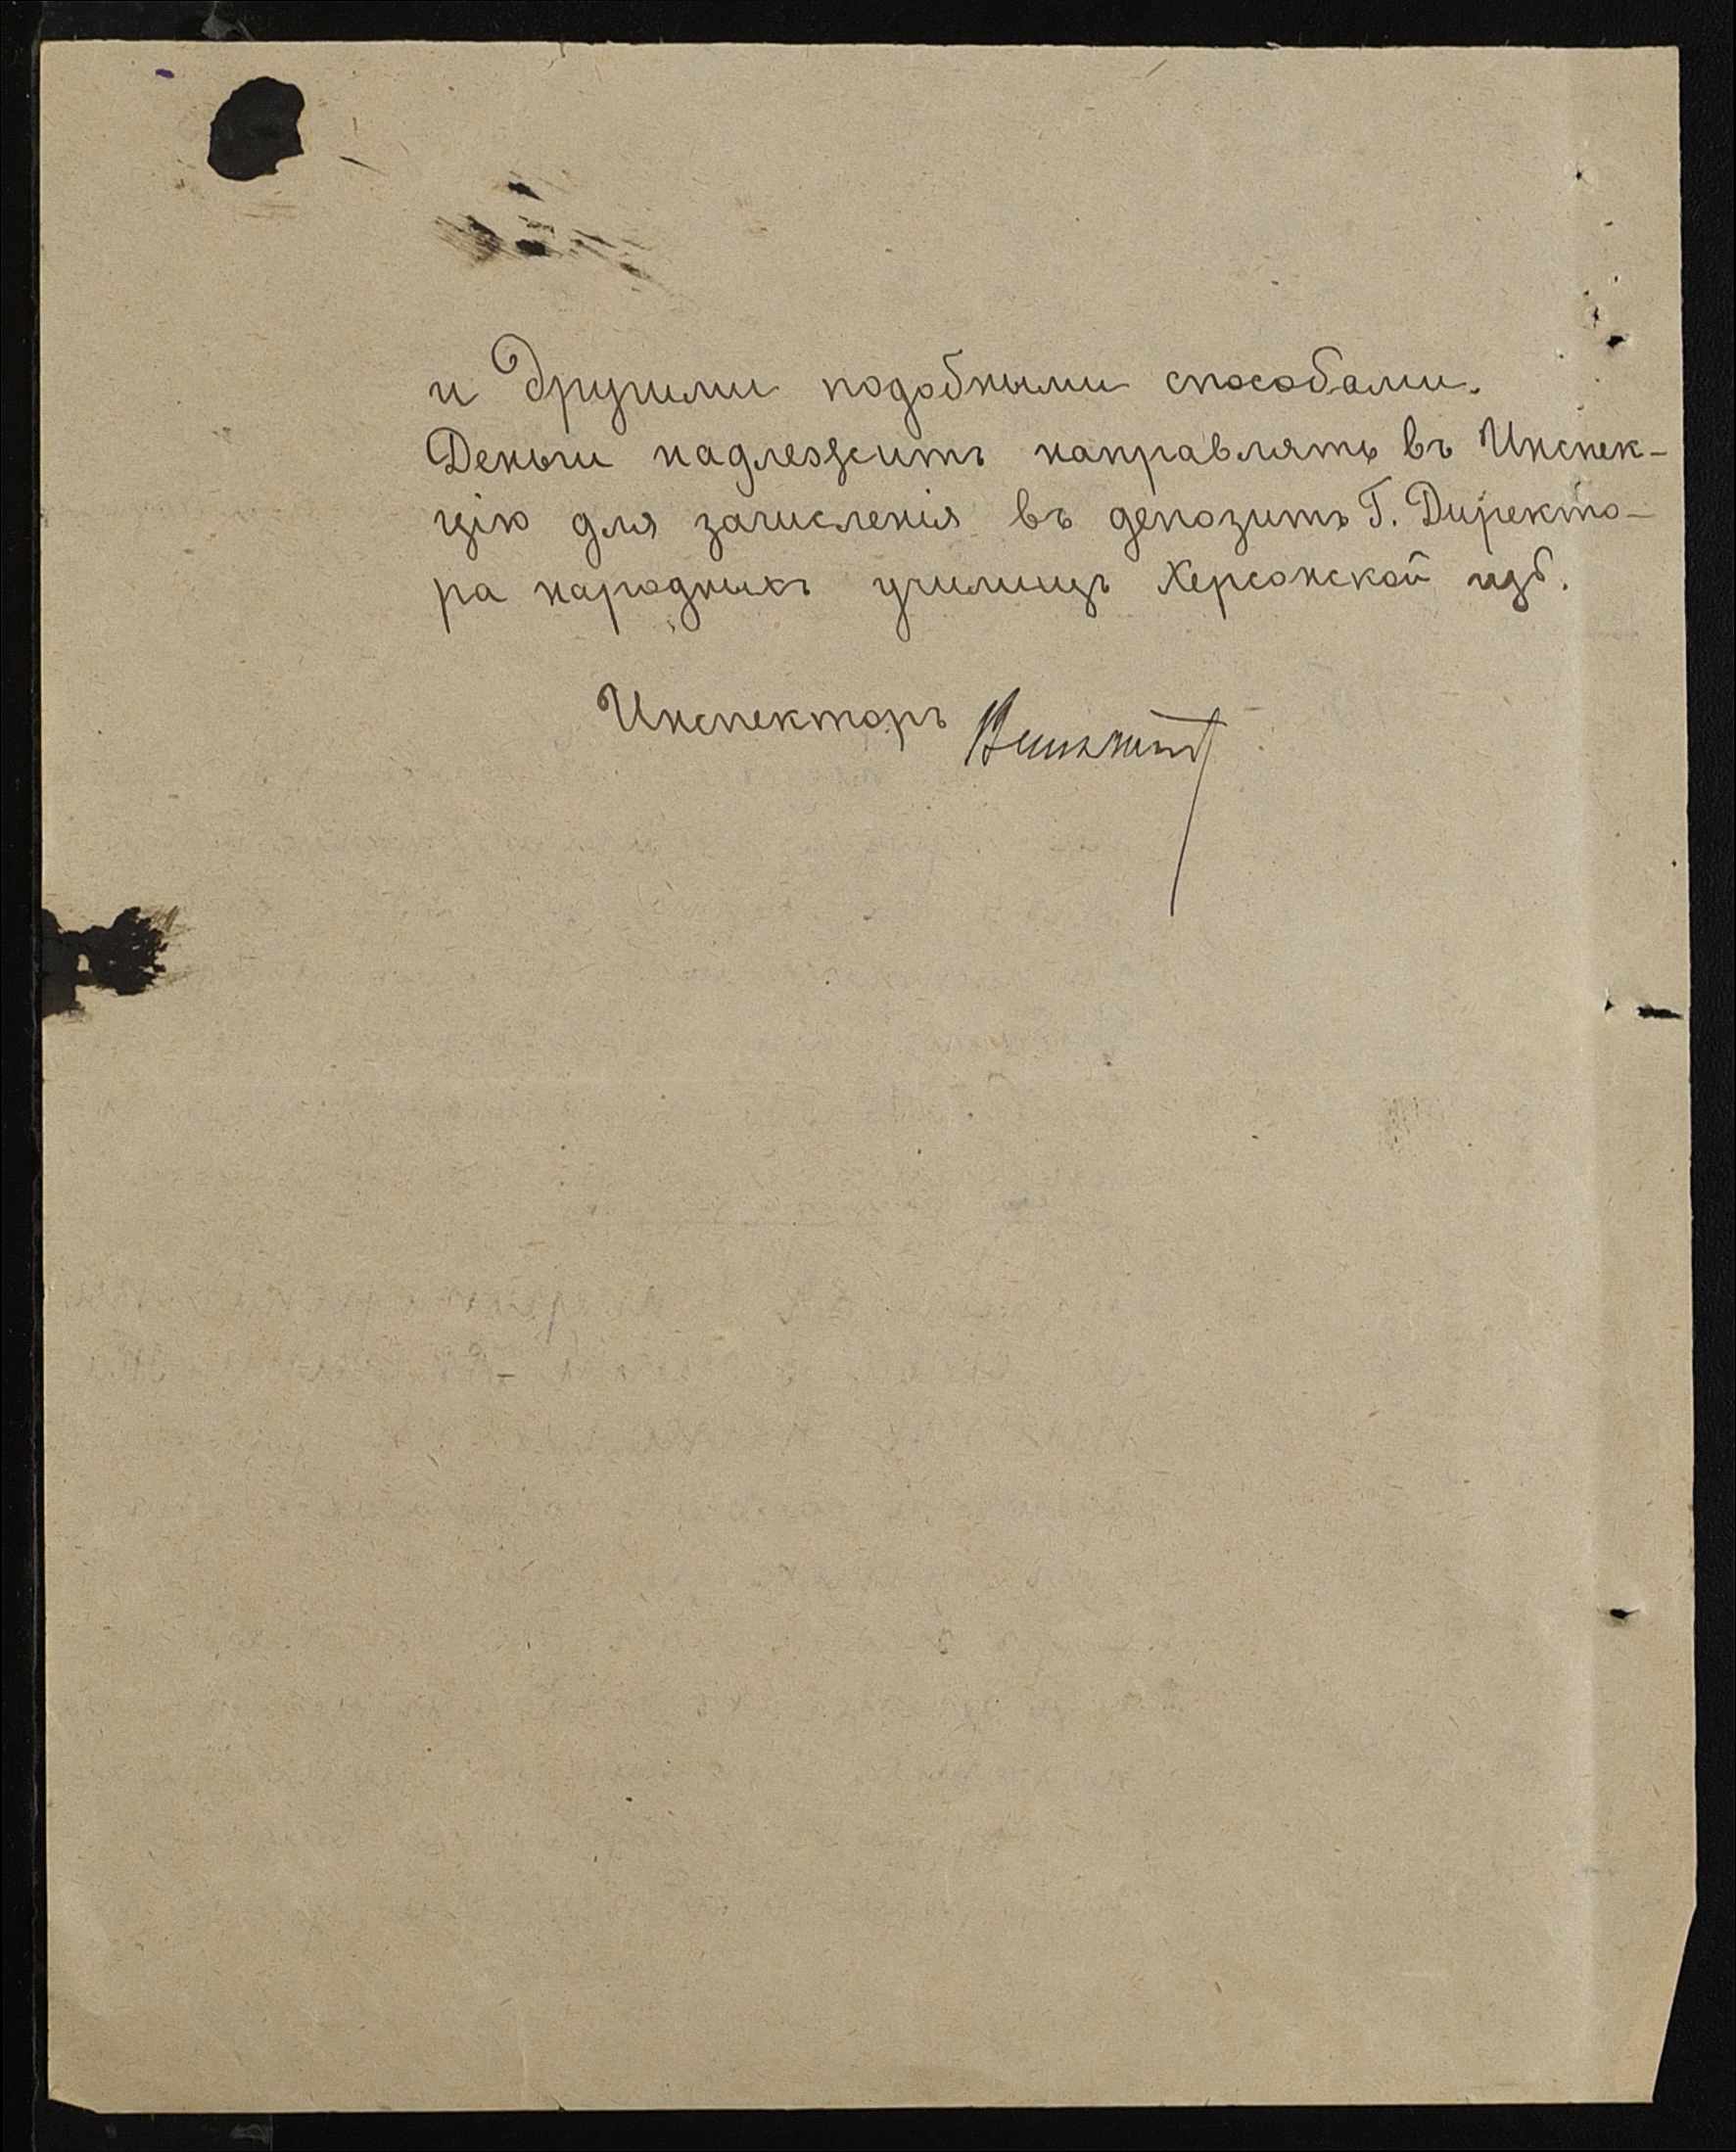 и другими подобными способами.
Деньги надлежитъ направлять въ Инспек-
цію для зачисленія въ депозитъ Г. Директо-
ра народныхъ училищъ Херсонской губ.
Инспекторъ